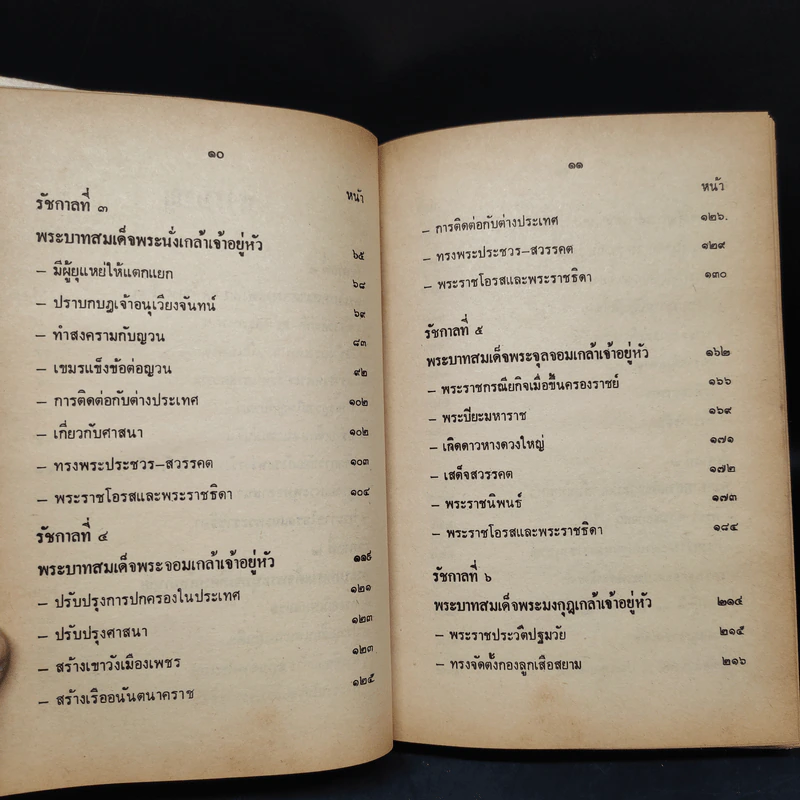 ๑๐
หน้า
รัชกาลที่ ๓
พระบาทสมเด็จพระนั่งเกล้าเจ้าอยู่หัว ๖๕
– มีผู้ยุแหย่ให้แตกแยก ๖๘
– ปราบกบฎเจ้าอนุเวียงจันทน์ ๖๙
– ทำสงครามกับญวน ๘๓
– เขมรแข็งข้อต่อญวน ๙๒
– การติดต่อกับต่างประเทศ ๑๐๒
– เกี่ยวกับศาสนา ๑๐๒
– ทรงพระประชวร–สวรรคต ๑๐๓
– พระราชโอรสและพระราชธิดา ๑๐๔
รัชกาลที่ ๔
พระบาทสมเด็จพระจอมเกล้าเจ้าอยู่หัว ๑๑๙
– ปรับปรุงการปกครองในประเทศ ๑๒๑
– ปรับปรุงศาสนา ๑๒๓
– สร้างเขาวังเมืองเพชร ๑๒๓
– สร้างเรืออนันตนาคราช ๑๒๕
๑๑
หน้า
– การติดต่อกับต่างประเทศ ๑๒๖.
– ทรงพระประชวร–สวรรคต ๑๒๙
– พระราชโอรสและพระราชธิดา ๑๓๐
รัชกาลที่ ๕
พระบาทสมเด็จพระจุลจอมเกล้าเจ้าอยู่หัว ๑๖๒
– พระราชกรณียกิจเมื่อขึ้นครองราชย์ ๑๖๖
– พระปิยะมหาราช ๑๖๙
– เกิดดาวหางดวงใหญ่ ๑๗๑
– เสด็จสวรรคต ๑๗๒
– พระราชนิพนธ์ ๑๗๓
– พระราชโอรสและพระราชธิดา ๑๘๔
รัชกาลที่ ๖
พระบาทสมเด็จพระมงกุฎเกล้าเจ้าอยู่หัว ๒๑๔
– พระราชประวัติปฐมวัย ๒๑๕
– ทรงจัดตั้งกองลูกเสือสยาม ๒๑๖